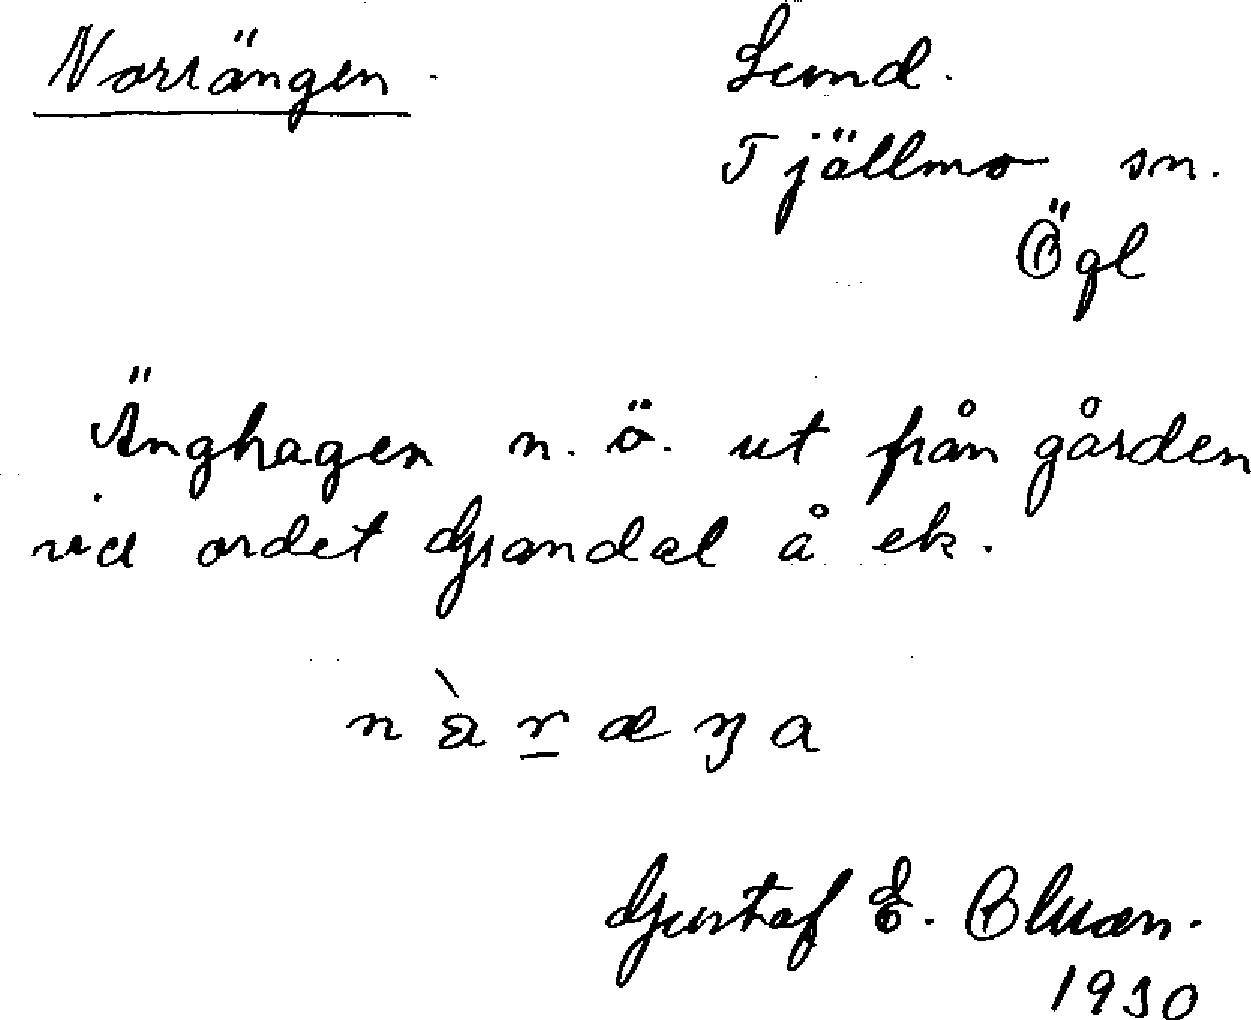 Norrängen.
Lund.
Tjällmo sn.
Ögl
Änghagen n.ö. ut från gården
vid ordet Grandal å ek.
Gustaf E.
1930